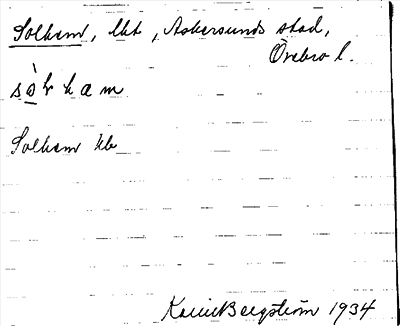 Solhem, lht, Askersunds stad,
Örebro l.
sòlhæm
Solhem kb
Karin Bergström 1934